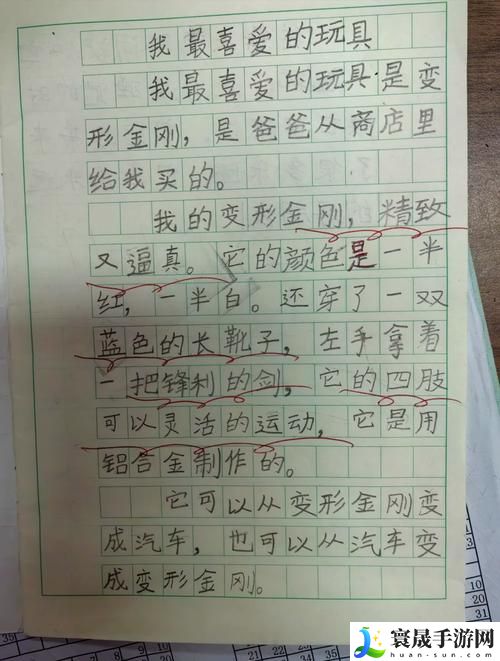 我最喜爱的玩具
我最喜爱的玩具是变
形金刚，是爸爸从商店里
给我买的。
我的变形金刚，精致
又逼真。它的颜色是一半
红，一半白。还穿了一双
蓝色的长靴子，左手拿着
一把锋利的剑，它的四肢
可以灵活的运动，它是用
铝合金制作的。
它可以从变形金刚变
成汽车，也可以从汽车变
成变形金刚。
寰晟手游网
huan-sun.com